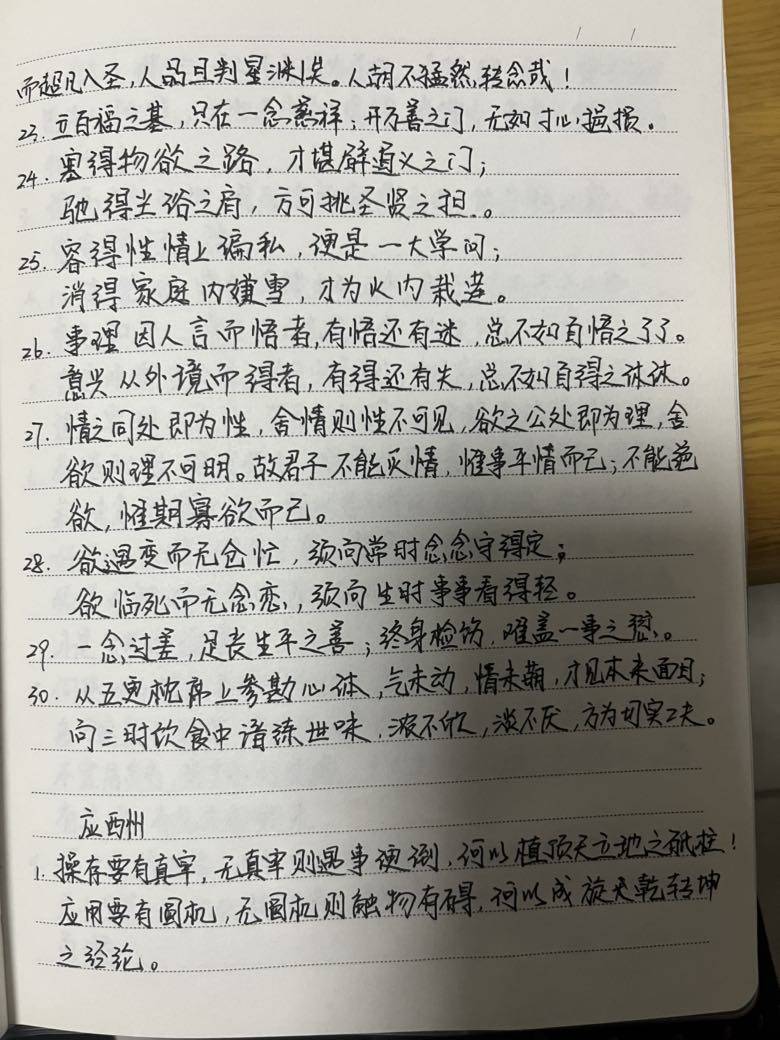 而超凡入圣,人品且判星渊矣。人胡不猛然转念哉!
23. 立百福之基,只在一念慈祥;开万善之门,无如寸心挹损。
24. 塞得物欲之路,才堪辟道义之门;
驰得尘俗之肩,方可挑圣贤之担。
25. 容得性情上偏私,便是一大学问;
消得家庭内嫌雪,才为火内栽莲。
26. 事理因人言而悟者,有悟还有迷,总不如自悟之了了。
意兴从外境而得者,有得还有失,总不如自得之休休。
27. 情之同处即为性,舍情则性不可见,欲之公处即为理,舍
欲则理不可明。故君子不能灭情,惟事平情而已;不能绝
欲,惟期寡欲而已。
28. 欲遇变而无仓忙,须向常时念念守得定;
欲临死而无念恋,须向生时事事看得轻。
29. 一念过差,足丧生平之善;终身检饬,难盖一事之愆。
30. 从五更枕席上参勘心体,气未动,情未萌,才见本来面目;
向三时饮食中谙练世味,浓不欣,淡不厌,方为切实工夫。
应酬
1. 操存要有真宰,无真宰则遇事便倒,何以植顶天立地之砥柱!
应用要有圆机,无圆机则触物有碍,何以成旋天乾转坤
之经纶。